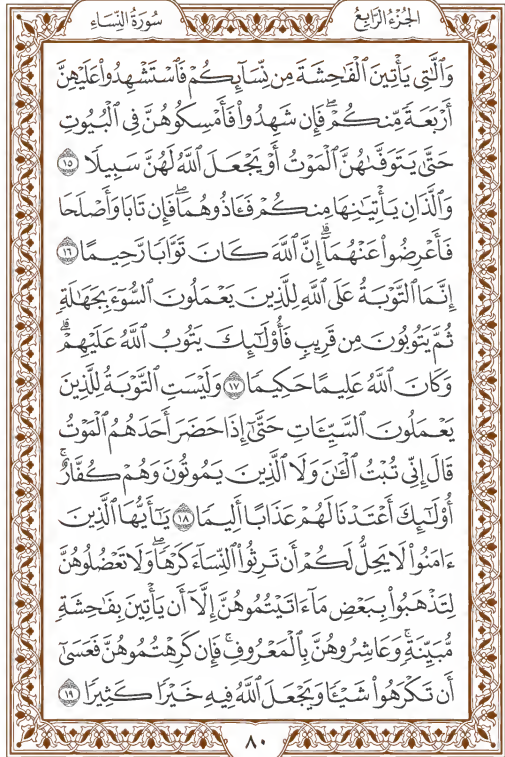 الجُزْءُ الرَّابِعُ سُورَةُ النِّسَاءِ
وَٱلَّٰتِي يَأۡتِينَ ٱلۡفَٰحِشَةَ مِن نِّسَآئِكُمۡ فَٱسۡتَشۡهِدُواْ عَلَيۡهِنَّ
أَرۡبَعَةٗ مِّنكُمۡۖ فَإِن شَهِدُواْ فَأَمۡسِكُوهُنَّ فِي ٱلۡبُيُوتِ
حَتَّىٰ يَتَوَفَّىٰهُنَّ ٱلۡمَوۡتُ أَوۡ يَجۡعَلَ ٱللَّهُ لَهُنَّ سَبِيلٗا ١٥
وَٱلَّذَانِ يَأۡتِيَٰنِهَا مِنكُمۡ فَـَٔاذُوهُمَاۖ فَإِن تَابَا وَأَصۡلَحَا
فَأَعۡرِضُواْ عَنۡهُمَآۗ إِنَّ ٱللَّهَ كَانَ تَوَّابٗا رَّحِيمًا ١٦
إِنَّمَا ٱلتَّوۡبَةُ عَلَى ٱللَّهِ لِلَّذِينَ يَعۡمَلُونَ ٱلسُّوٓءَ بِجَهَٰلَةٖ
ثُمَّ يَتُوبُونَ مِن قَرِيبٖ فَأُوْلَٰٓئِكَ يَتُوبُ ٱللَّهُ عَلَيۡهِمۡۗ
وَكَانَ ٱللَّهُ عَلِيمًا حَكِيمٗا ١٧ وَلَيۡسَتِ ٱلتَّوۡبَةُ لِلَّذِينَ
يَعۡمَلُونَ ٱلسَّيِّـَٔاتِ حَتَّىٰٓ إِذَا حَضَرَ أَحَدَهُمُ ٱلۡمَوۡتُ
قَالَ إِنِّي تُبۡتُ ٱلۡـَٰٔنَ وَلَا ٱلَّذِينَ يَمُوتُونَ وَهُمۡ كُفَّارٌۚ
أُوْلَٰٓئِكَ أَعۡتَدۡنَا لَهُمۡ عَذَابًا أَلِيمٗا ١٨ يَٰٓأَيُّهَا ٱلَّذِينَ
ءَامَنُواْ لَا يَحِلُّ لَكُمۡ أَن تَرِثُواْ ٱلنِّسَآءَ كَرۡهٗاۖ وَلَا تَعۡضُلُوهُنَّ
لِتَذۡهَبُواْ بِبَعۡضِ مَآ ءَاتَيۡتُمُوهُنَّ إِلَّآ أَن يَأۡتِينَ بِفَٰحِشَةٖ
مُّبَيِّنَةٖۚ وَعَاشِرُوهُنَّ بِٱلۡمَعۡرُوفِۚ فَإِن كَرِهۡتُمُوهُنَّ فَعَسَىٰٓ
أَن تَكۡرَهُواْ شَيۡـٔٗا وَيَجۡعَلَ ٱللَّهُ فِيهِ خَيۡرٗا كَثِيرٗا ١٩
٨٠